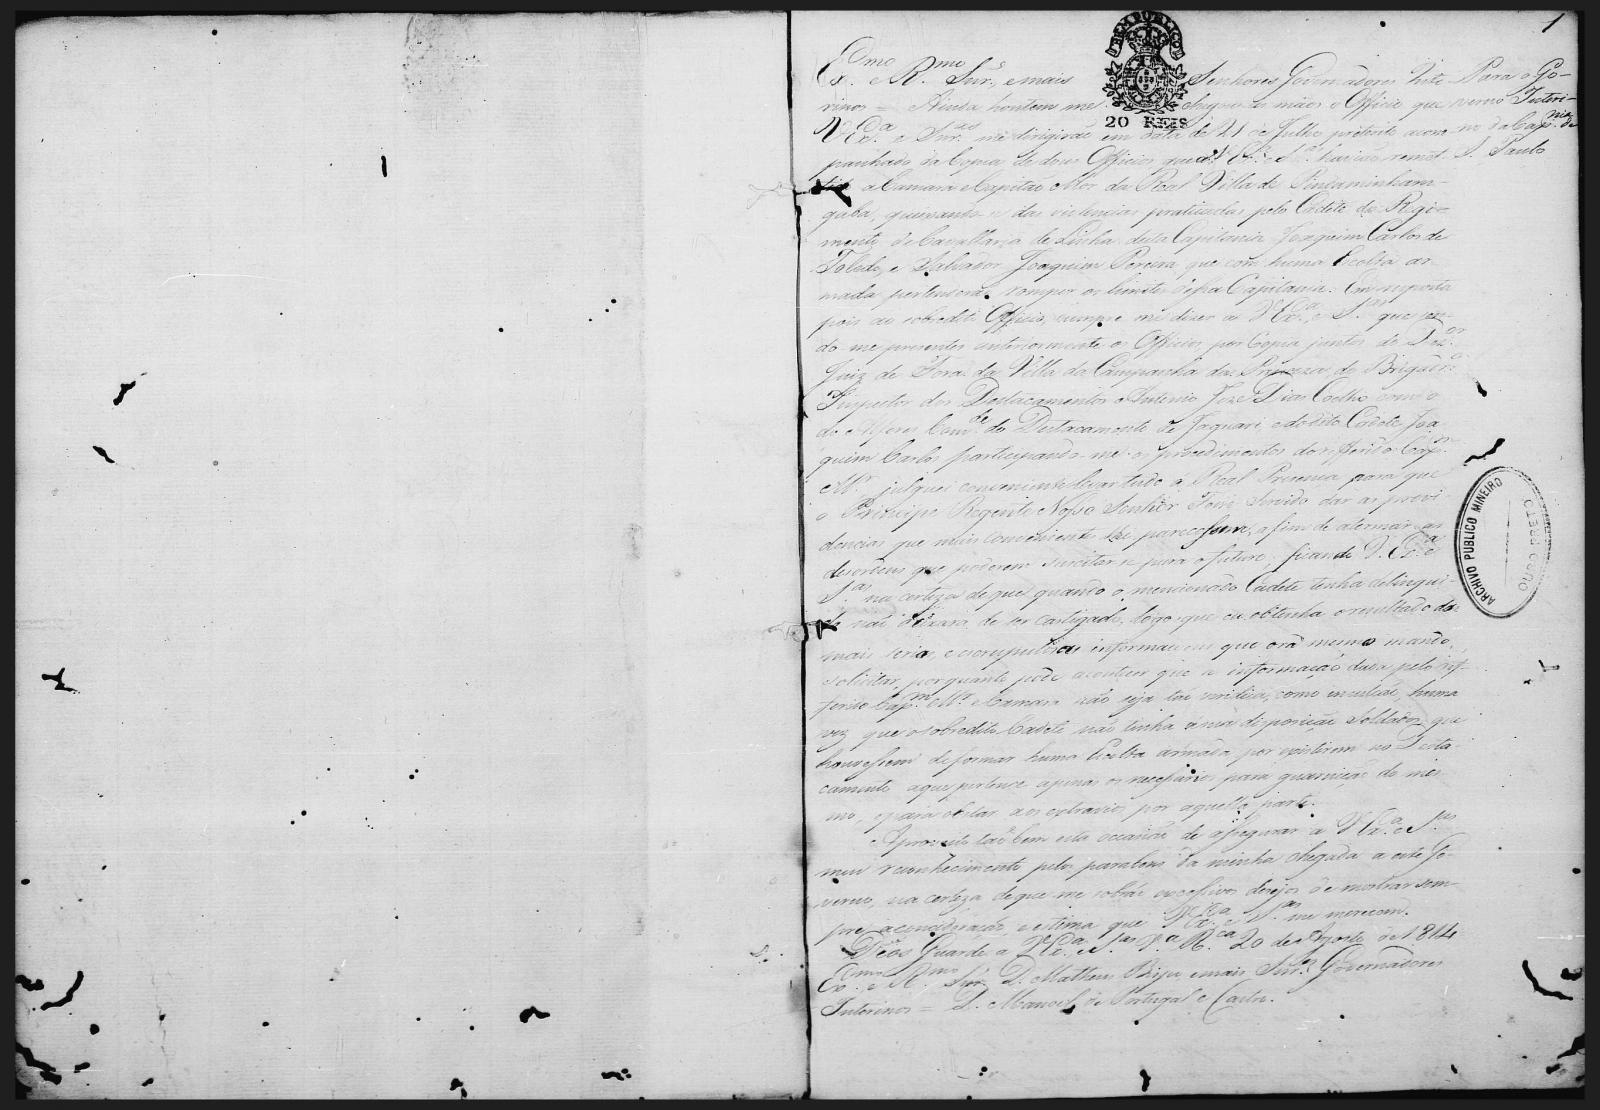 1
BOM PUBLICO
20 REIS
Ex.mo e R.mo Snr., e mais Senhores Governadores Inte-
rinos = Ainda hontem me chegou as mãos o Officio que
V. Ex.a e Snr.as me dirigirão em data de 21 de Julho preterito acom-
panhado da Copia de dous Officios que a V. Ex.a e S.as havião remet-
tido a Camara e Capitão Mor da Real Villa de Pindaminham-
gaba, queixando-se das violencias praticadas pelo Cadete do Regi-
mento de Cavallaria de Linha desta Capitania Joaquim Carlos de
Toledo, e Salvador Joaquim Pereira que com huma Escolta ar-
mada pertenderão romper os limites dessa Capitania. Em resposta
pois ao sobredito Officio, cumpre me dizer a V. Ex.a e S.as que sen-
do me presentes anteriormente os Officios por Copia juntos do Dez.or
Juiz de Fora da Villa da Campanha da Princeza, do Brigad.ro
Inspector dos Destacamentos Antonio Joze Dias Coelho com o
do Alferes Com.de do Destacamento de Jaguari, e do dito Cadete Joa-
quim Carlos participando-me os procedimentos do referido Cap.m
M.r, julguei conveniente levar tudo a Real Presença para que
o Principe Regente Nosso Senhor Fosse Servido dar as provi-
dencias que mais convenientes lhe parecessem, a fim de atermar as
desordens que poderem suscitar-se para o futuro, ficando V. Ex.a e
S.as na certeza de que quando o mencionado Cadete tenha delinqui-
do não deixará de ser castigado, logo que eu obtenha o resultado das
mais serias, e escrupulosas informaçoens que ora mesmo mando
solicitar, porquanto pode acontecer que a informação dada pelo re-
ferido Cap.m M.r e Camara não seja tão veridica, como inculcão, huma
vez que o sobredito Cadete não tinha a sua disposição Soldados que
houvessem de formar huma Escolta armada, por existirem no Desta-
camento a que pertence apenas os necessarios para guarnição do mes-
mo, e para obstar aos extravios por aquella parte.
Aproveito tão bem esta occasião de assegurar a V. Ex.a e S.as
meu reconhecimento pelos parabens da minha chegada a este Go-
verno, na certeza de que me sobrão excessivos desejos de mostrar sem-
pre a consideração, e estima que V. Ex.a e S.as me merecem.
Deos Guarde a V. Ex.a e S.as V.a R.ca 20 de Agosto de 1814
Ex.mo e R.mo Snr. D. Matheus Bispo e mais Snr.es Governadores
Interinos = D. Manoel de Portugal e Castro.
Para o Go-
verno Interi-
no da Cap.nia de
S. Paulo
ARCHIVO PUBLICO MINEIRO
OURO PRETO